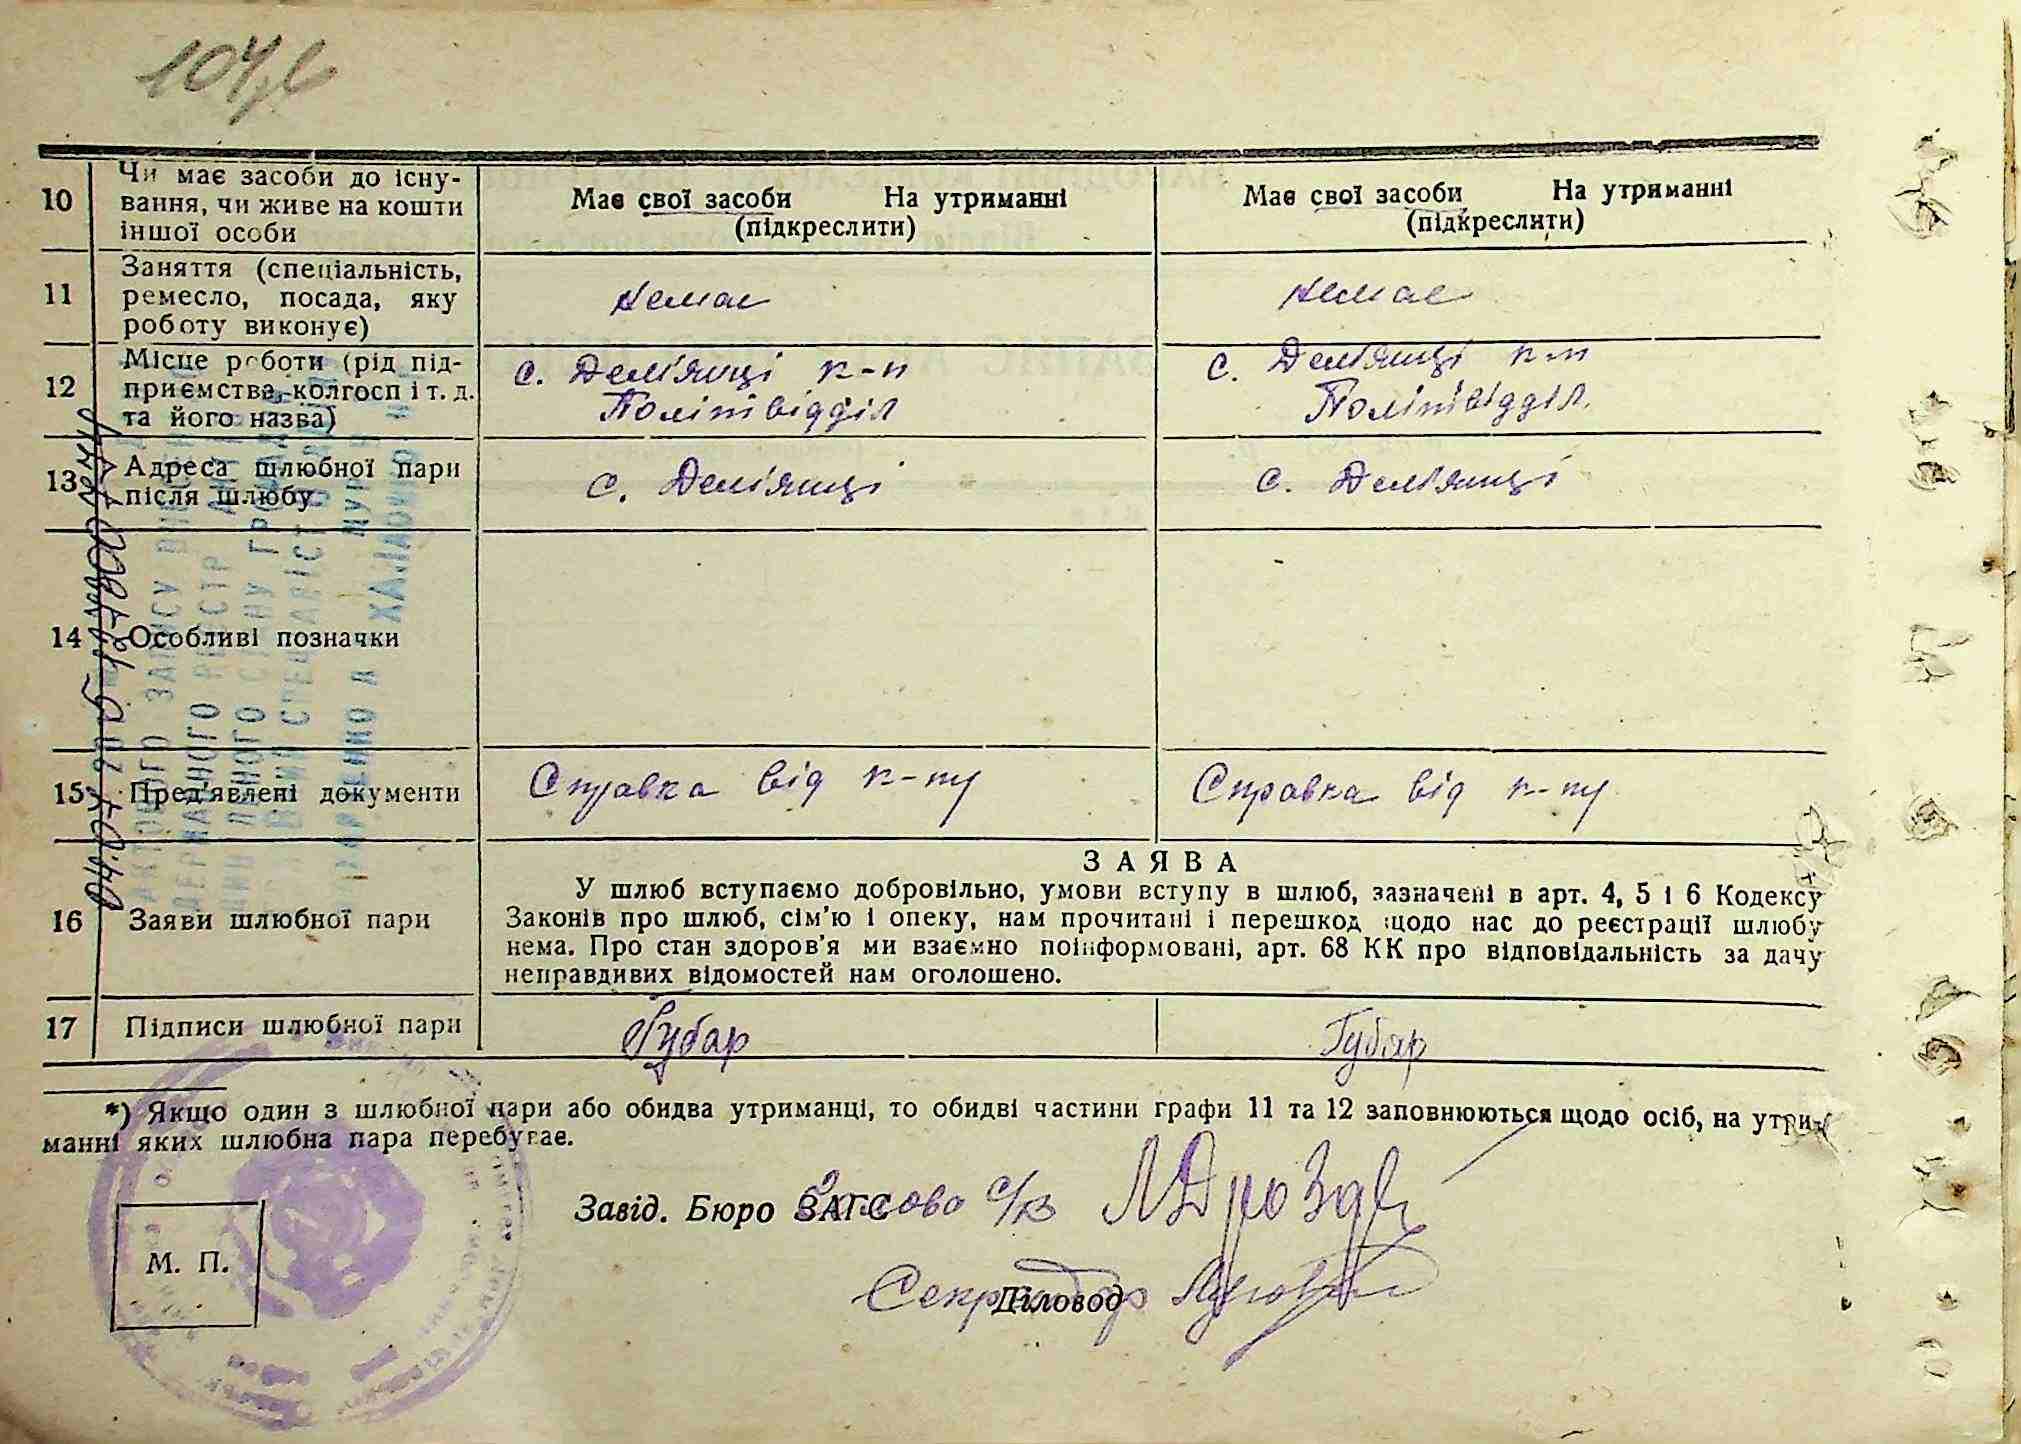 10
Чи має засоби до існу-
вання, чи живе на кошти
іншої особи
Має свої засоби На утриманні
(підкреслити)
Має свої засоби На утриманні
(підкреслити)
11
Заняття (спеціальність,
ремесло, посада, яку
роботу виконує)
немає
немає
12
Місце роботи (рід під-
приємства, колгосп і т. д.
та його назва)
с. Дем'янці к-п
Політвідділ
с. Дем'янці к-п
Політвідділ
13
Адреса шлюбної пари
після шлюбу
с. Дем'янці
с. Дем'янці
14
Особливі позначки
15
Пред'явлені документи
Справка від к-пу
Справка від к-пу
16
Заяви шлюбної пари
ЗАЯВА
У шлюб вступаємо добровільно, умови вступу в шлюб, зазначені в арт. 4, 5 і 6 Кодексу
Законів про шлюб, сім'ю і опеку, нам прочитані і перешкод щодо нас до реєстрації шлюбу
нема. Про стан здоров'я ми взаємно поінформовані, арт. 68 КК про відповідальність за дачу
неправдивих відомостей нам оголошено.
17
Підписи шлюбної пари
Губар
Губар
*) Якщо один з шлюбної пари або обидва утриманці, то обидві частини графи 11 та 12 заповнюються щодо осіб, на утри-
манні яких шлюбна пара перебуває.
Завід. Бюро ЗАГС Голова с/в
М. П.
Діловод Секретар